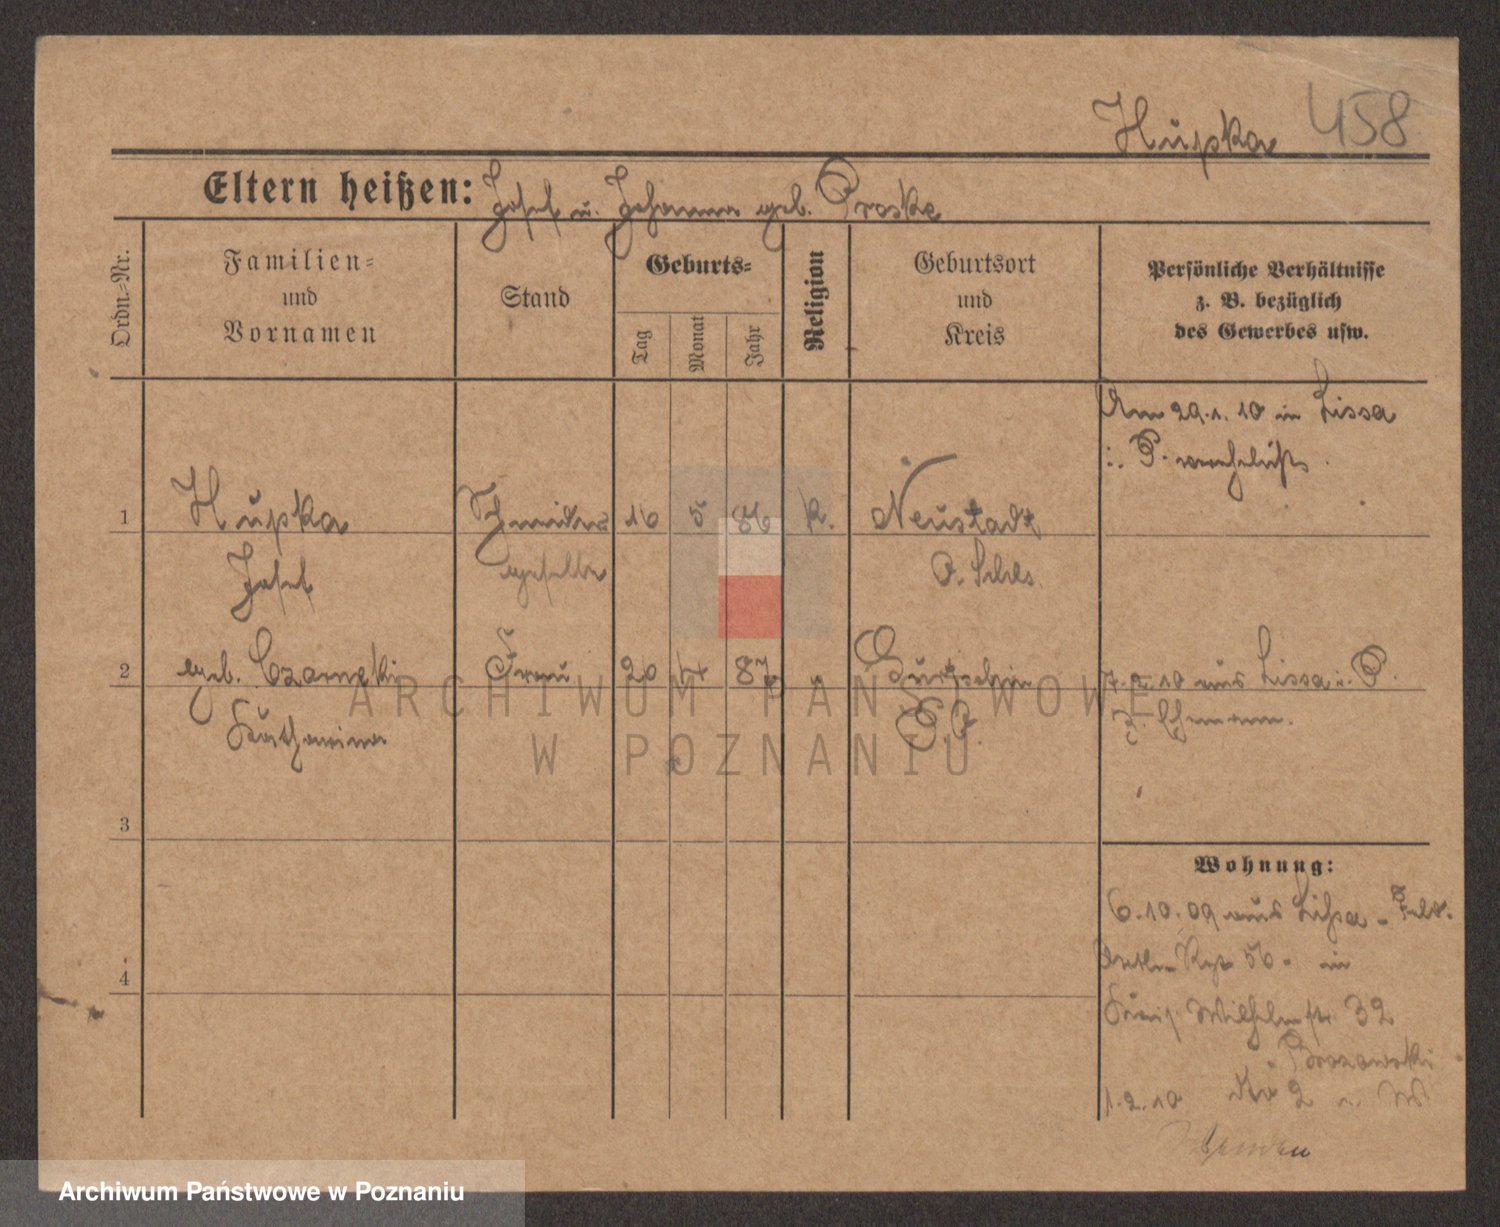 Hupka 458
Eltern heißen: Josef u. Johanna geb. Proske
Ordn.-Nr.
Familien-
und
Vornamen
Stand
Geburts-
Tag
Monat
Jahr
Religion
Geburtsort
und
Kreis
Persönliche Verhältnisse
z. B. bezüglich
des Gewerbes usw.
Am 29.1.10 in Lissa
i. P. verehelicht.
1 Hupka Schneider 16 5 86 k. Neustadt
Josef geselle O. Schles
2 geb. Czarnecki Frau 20 4 87 Gurtschin 7.2.10 aus Lissa i. P.
Katharina P. O. z. Ehemann.
3
Wohnung:
6.10.09 aus Lissa - Feld.
Artl. Rgt 56 - in
4
König Wilhelmstr 32
1.2.10 2
ARCHIWUM PAŃSTWOWE
W POZNANIU
Archiwum Państwowe w Poznaniu